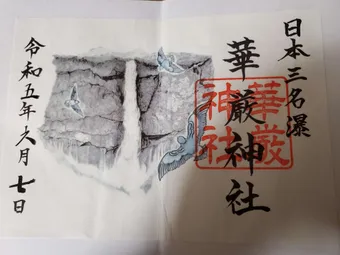 日本三名瀑
華厳神社
華厳
神社
令和五年月七日